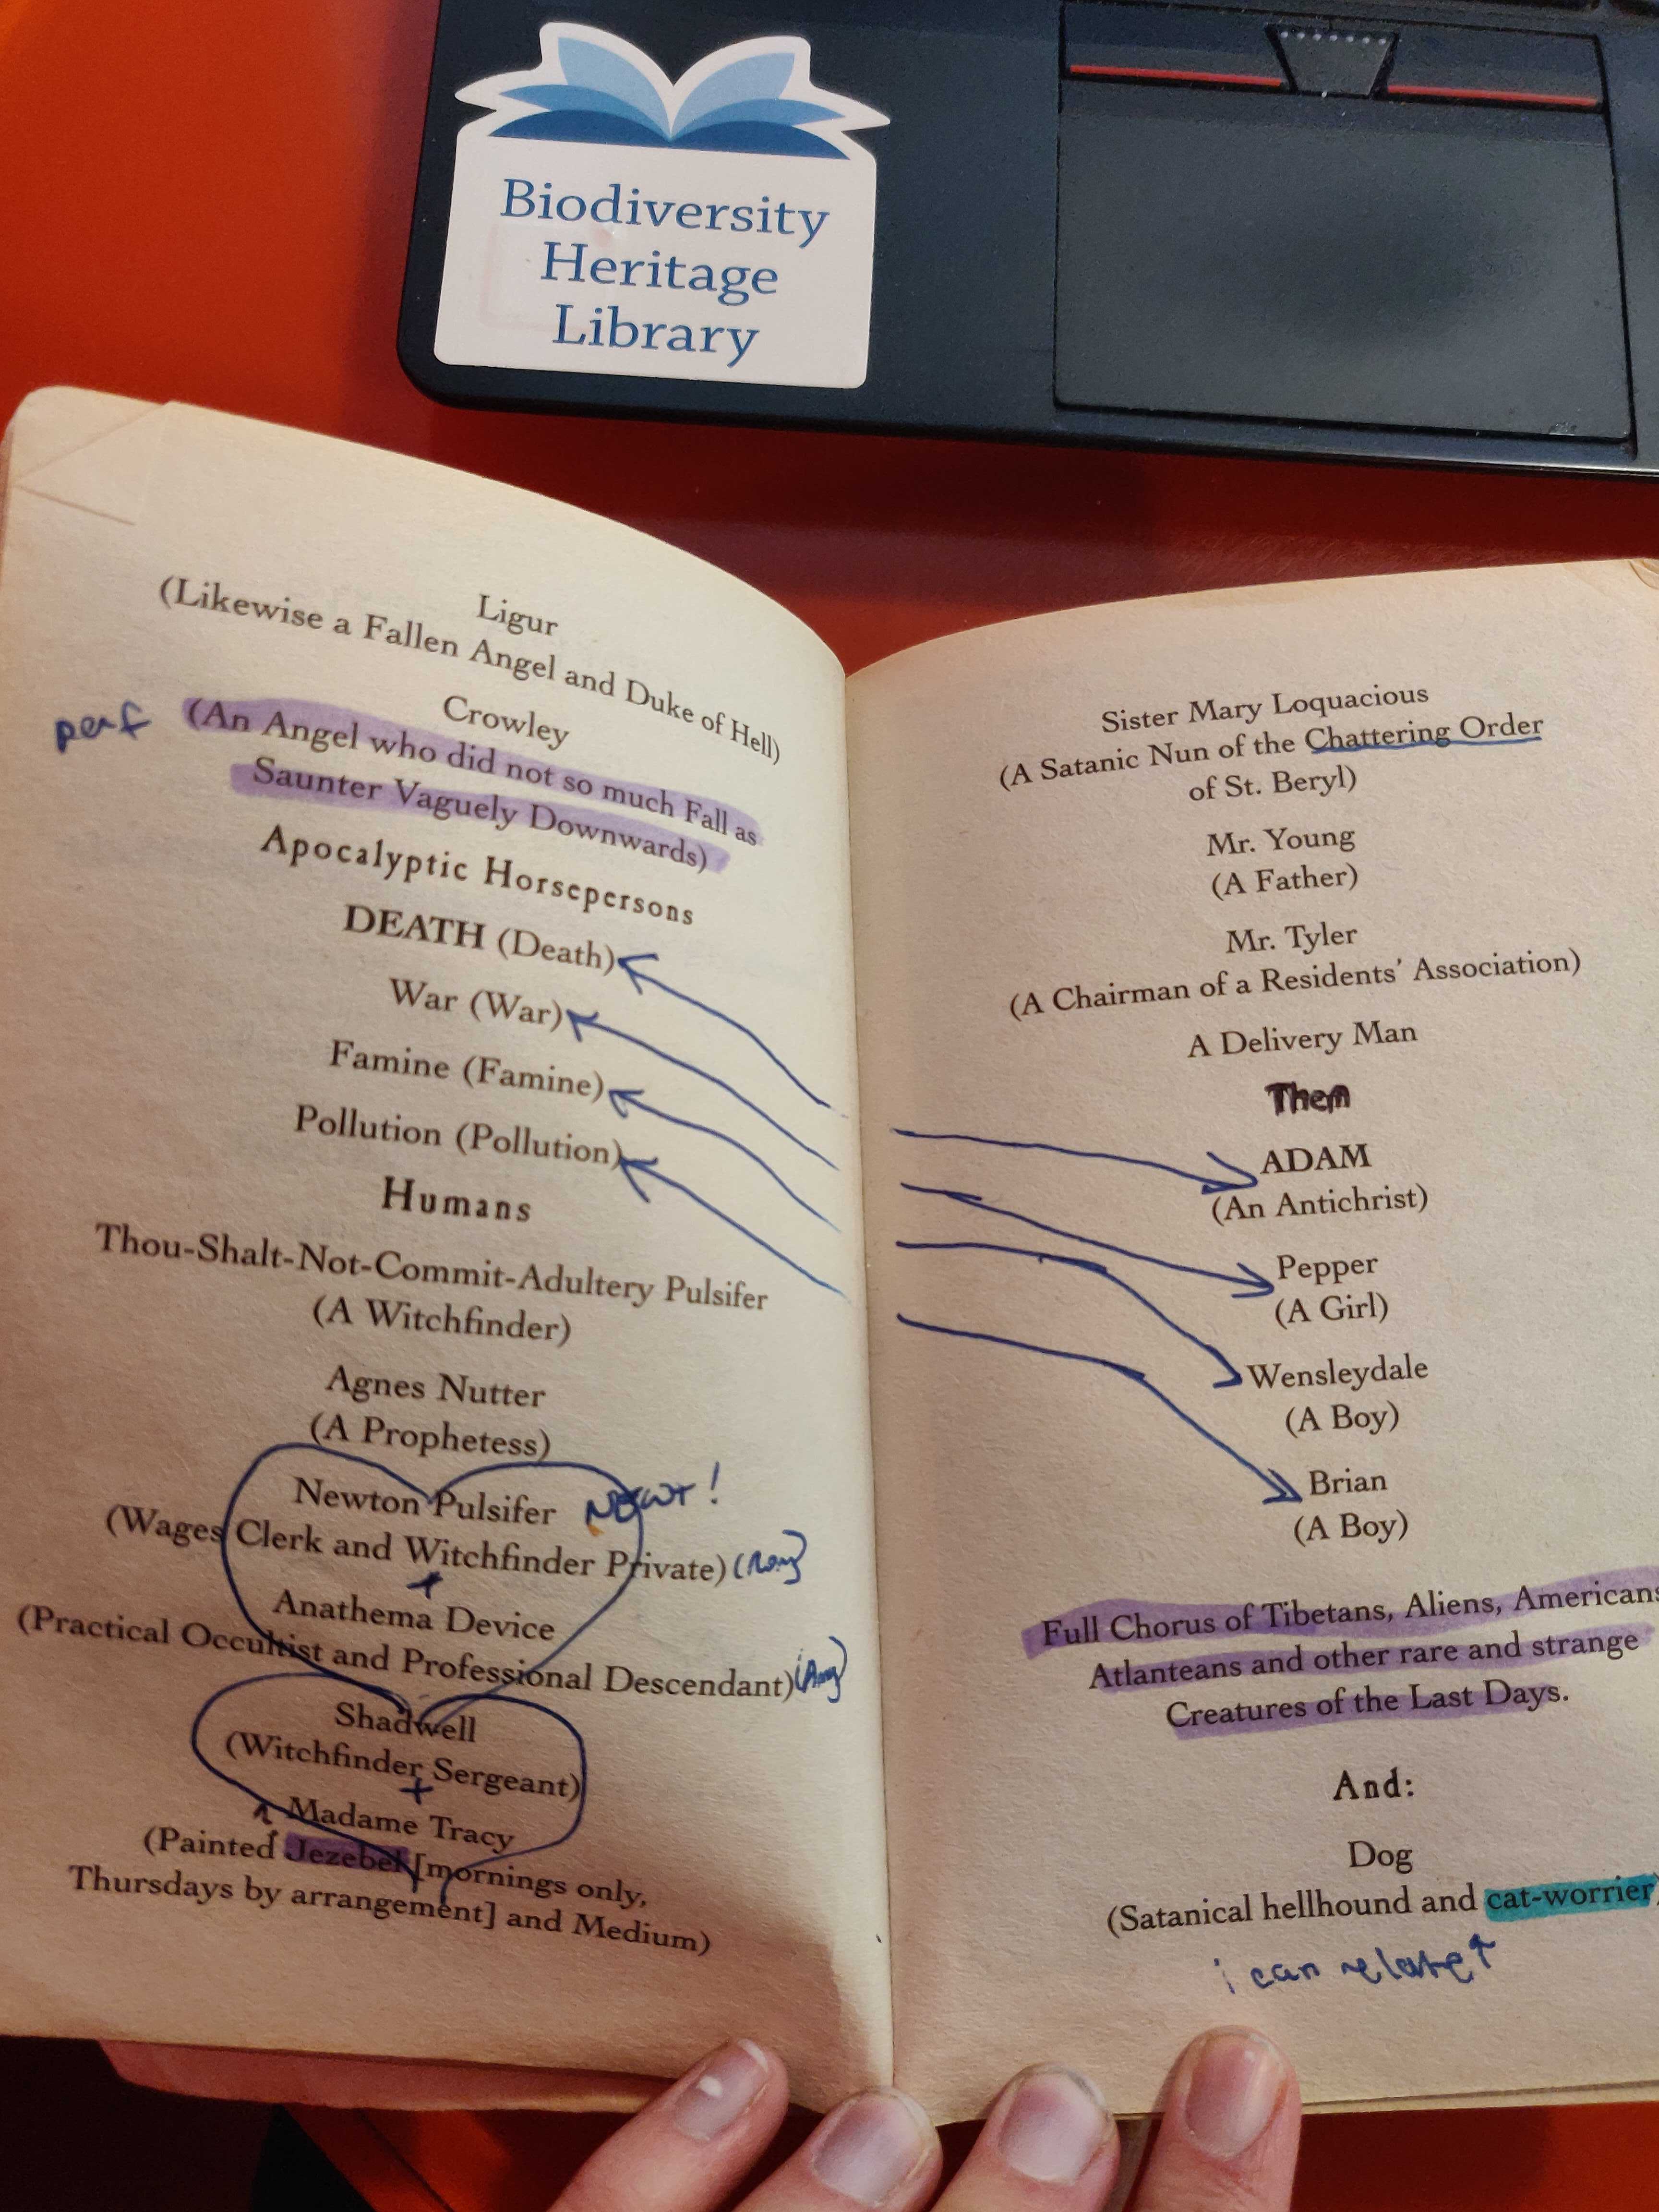 Biodiversity
Heritage
Library
Ligur
(Likewise a Fallen Angel and Duke of Hell)
Crowley
perf
(An Angel who did not so much Fall as
Saunter Vaguely Downwards)
Apocalyptic Horsepersons
DEATH (Death)
War (War)
Famine (Famine)
Pollution (Pollution)
Humans
Thou-Shalt-Not-Commit-Adultery Pulsifer
(A Witchfinder)
Agnes Nutter
(A Prophetess)
Newton Pulsifer NEWT!
(Wages Clerk and Witchfinder Private)
+
Anathema Device
(Practical Occultist and Professional Descendant)
Shadwell
(Witchfinder Sergeant)
+
Madame Tracy
(Painted Jezebel [mornings only,
Thursdays by arrangement] and Medium)
Sister Mary Loquacious
(A Satanic Nun of the Chattering Order
of St. Beryl)
Mr. Young
(A Father)
Mr. Tyler
(A Chairman of a Residents' Association)
A Delivery Man
Them
ADAM
(An Antichrist)
Pepper
(A Girl)
Wensleydale
(A Boy)
Brian
(A Boy)
Full Chorus of Tibetans, Aliens, Americans
Atlanteans and other rare and strange
Creatures of the Last Days.
And:
Dog
(Satanical hellhound and cat-worrier)
i can relate